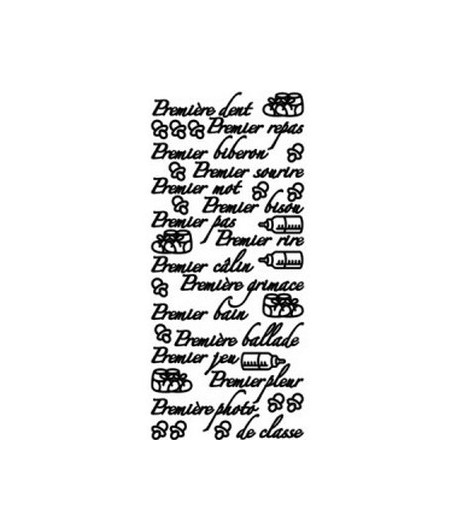 Première dent
Premier repas
Premier biberon
Premier sourire
Premier mot
Premier bisou
Premier pas
Premier rire
Premier câlin
Première grimace
Premier bain
Première ballade
Premier jeu
Premier pleur
Première photo
de classe